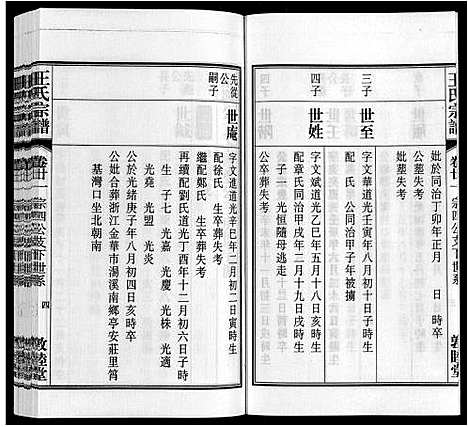 王氏宗譜
卷廿一
宗四公支下世系
敦睦堂
妣於同治丁卯年正月 日 時卒
公墓失考
妣墓失考
三子
世至
字文華道光壬寅年八月初十日子時生
配氏 公同治甲子年被擄
四子
世姓
字文斌道光乙巳年五月十八日亥時生
配章氏同治甲子年二月十九日戌時生
公於光恒隨母逃走
公卒葬失考
先從公嗣子
世庵
字文進道光辛巳年二月初二日寅時生
配余氏 生卒葬失考
繼配鄭氏 生卒葬失考
再續配劉氏道光丁酉年十二月初六日子時
生 子七 光嘉 光慶 光株 光適
光堯 光盟 光炎
公於光緒庚子年八月初四日亥時卒
公妣合葬浙江金華市湯溪南鄉亭安莊里筲
基灣口坐北朝南
王氏宗譜
卷廿一
宗四公支下世系
四
敦睦堂